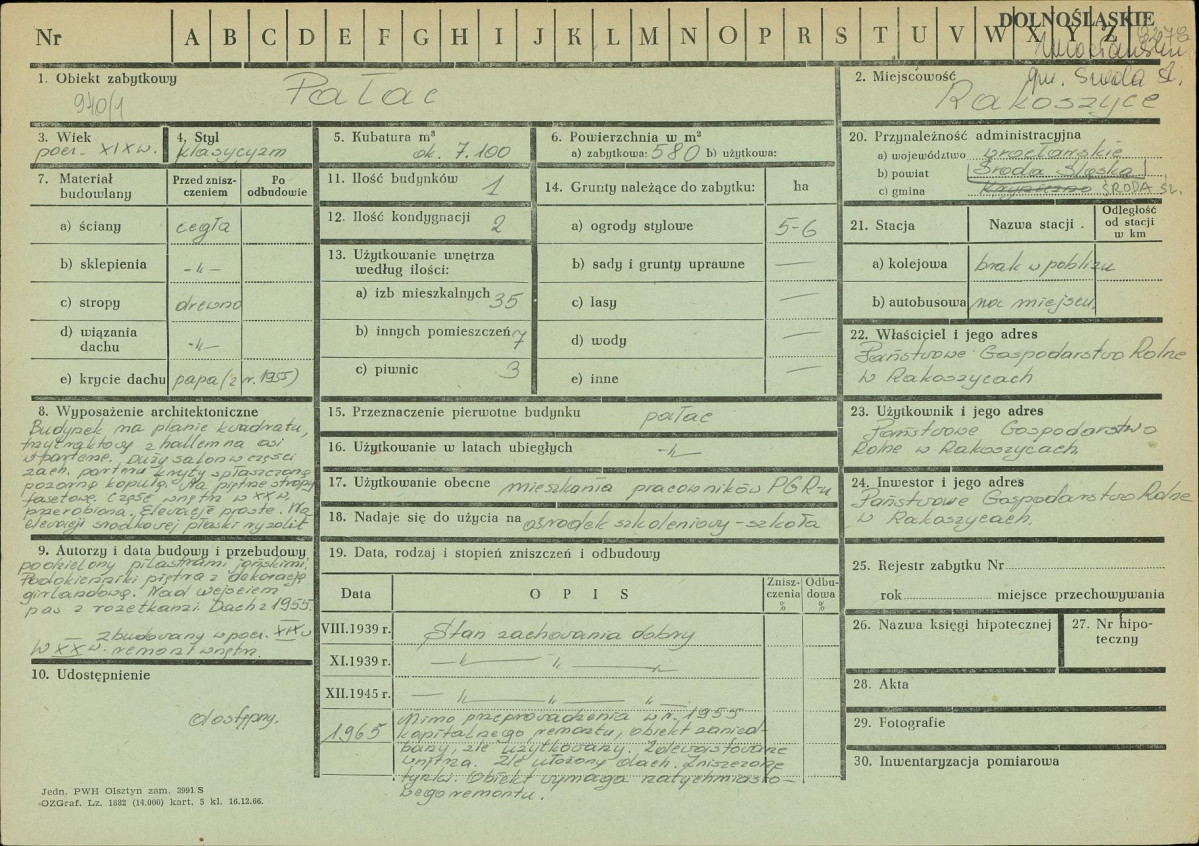 Nr A B C D E F G H I J K L M N O P R S T U V W X Y Z
DOLNOŚLĄSKIE
gm. Środa Śl.
1. Obiekt zabytkowy
940/1
Pałac
2. Miejscowość
Rakoszyce
3. Wiek
pocz. XIX w.
4. Styl
klasycyzm
5. Kubatura m³
ok. 7.100
6. Powierzchnia w m²
a) zabytkowa: 580 b) użytkowa:
7. Materiał budowlany
Przed zniszczeniem
Po odbudowie
a) ściany cegła
b) sklepienia -〃-
c) stropy drewno
d) wiązania dachu -〃-
e) krycie dachu papa (z r. 1955)
8. Wyposażenie architektoniczne
Budynek na planie kwadratu,
trzytraktowy z hallem na osi
w parterze. Duży salon w części
zach. parteru kryty spłaszczoną
pozorną kopułą. Na piętrze stropy
fasetowe. Część wnętrz w XX w.
przerobiona. Elewacje proste. Na
elewacji środkowej płaski ryzalit
9. Autorzy i data budowy i przebudowy
podzielony pilastrami jońskimi.
Podokienniki piętra z dekoracją
girlandową. Nad wejściem
pas z rozetkami. Dach z 1955.
zbudowany w pocz. XIX w
W XX w. remont wnętrz.
10. Udostępnienie
dostępny.
11. Ilość budynków 1
12. Ilość kondygnacji 2
13. Użytkowanie wnętrza według ilości:
a) izb mieszkalnych 35
b) innych pomieszczeń 7
c) piwnic 3
14. Grunty należące do zabytku: ha
a) ogrody stylowe 5-6
b) sady i grunty uprawne —
c) lasy —
d) wody —
e) inne —
15. Przeznaczenie pierwotne budynku pałac
16. Użytkowanie w latach ubiegłych -〃-
17. Użytkowanie obecne mieszkania pracowników PGR-u
18. Nadaje się do użycia na ośrodek szkoleniowy - szkoła
19. Data, rodzaj i stopień zniszczeń i odbudowy
Data
OPIS
Zniszczenia %
Odbudowa %
VIII.1939 r. Stan zachowania dobry
XI.1939 r. — 〃 — 〃 — 〃
XII.1945 r. — 〃 — 〃 — 〃
1965 Mimo przeprowadzenia w r. 1955
kapitalnego remontu, obiekt zanied-
bany, źle użytkowany. Zdewastowane
wnętrza. Źle ułożony dach. Zniszczone
tynki. Obiekt wymaga natychmiasto-
wego remontu.
20. Przynależność administracyjna
a) województwo wrocławskie
b) powiat Środa Śląska
c) gmina ŚRODA ŚL.
21. Stacja
Nazwa stacji
Odległość od stacji w km
a) kolejowa brak w pobliżu
b) autobusowa na miejscu.
22. Właściciel i jego adres
Państwowe Gospodarstwo Rolne
w Rakoszycach
23. Użytkownik i jego adres
Państwowe Gospodarstwo
Rolne w Rakoszycach.
24. Inwestor i jego adres
Państwowe Gospodarstwo Rolne
w Rakoszycach.
25. Rejestr zabytku Nr
rok miejsce przechowywania
26. Nazwa księgi hipotecznej
27. Nr hipoteczny
28. Akta
29. Fotografie
30. Inwentaryzacja pomiarowa
Jedn. PWH Olsztyn zam. 3991/S
OZGraf. Lz. 1882 (14.000) kart. 5 kl. 16.12.66.